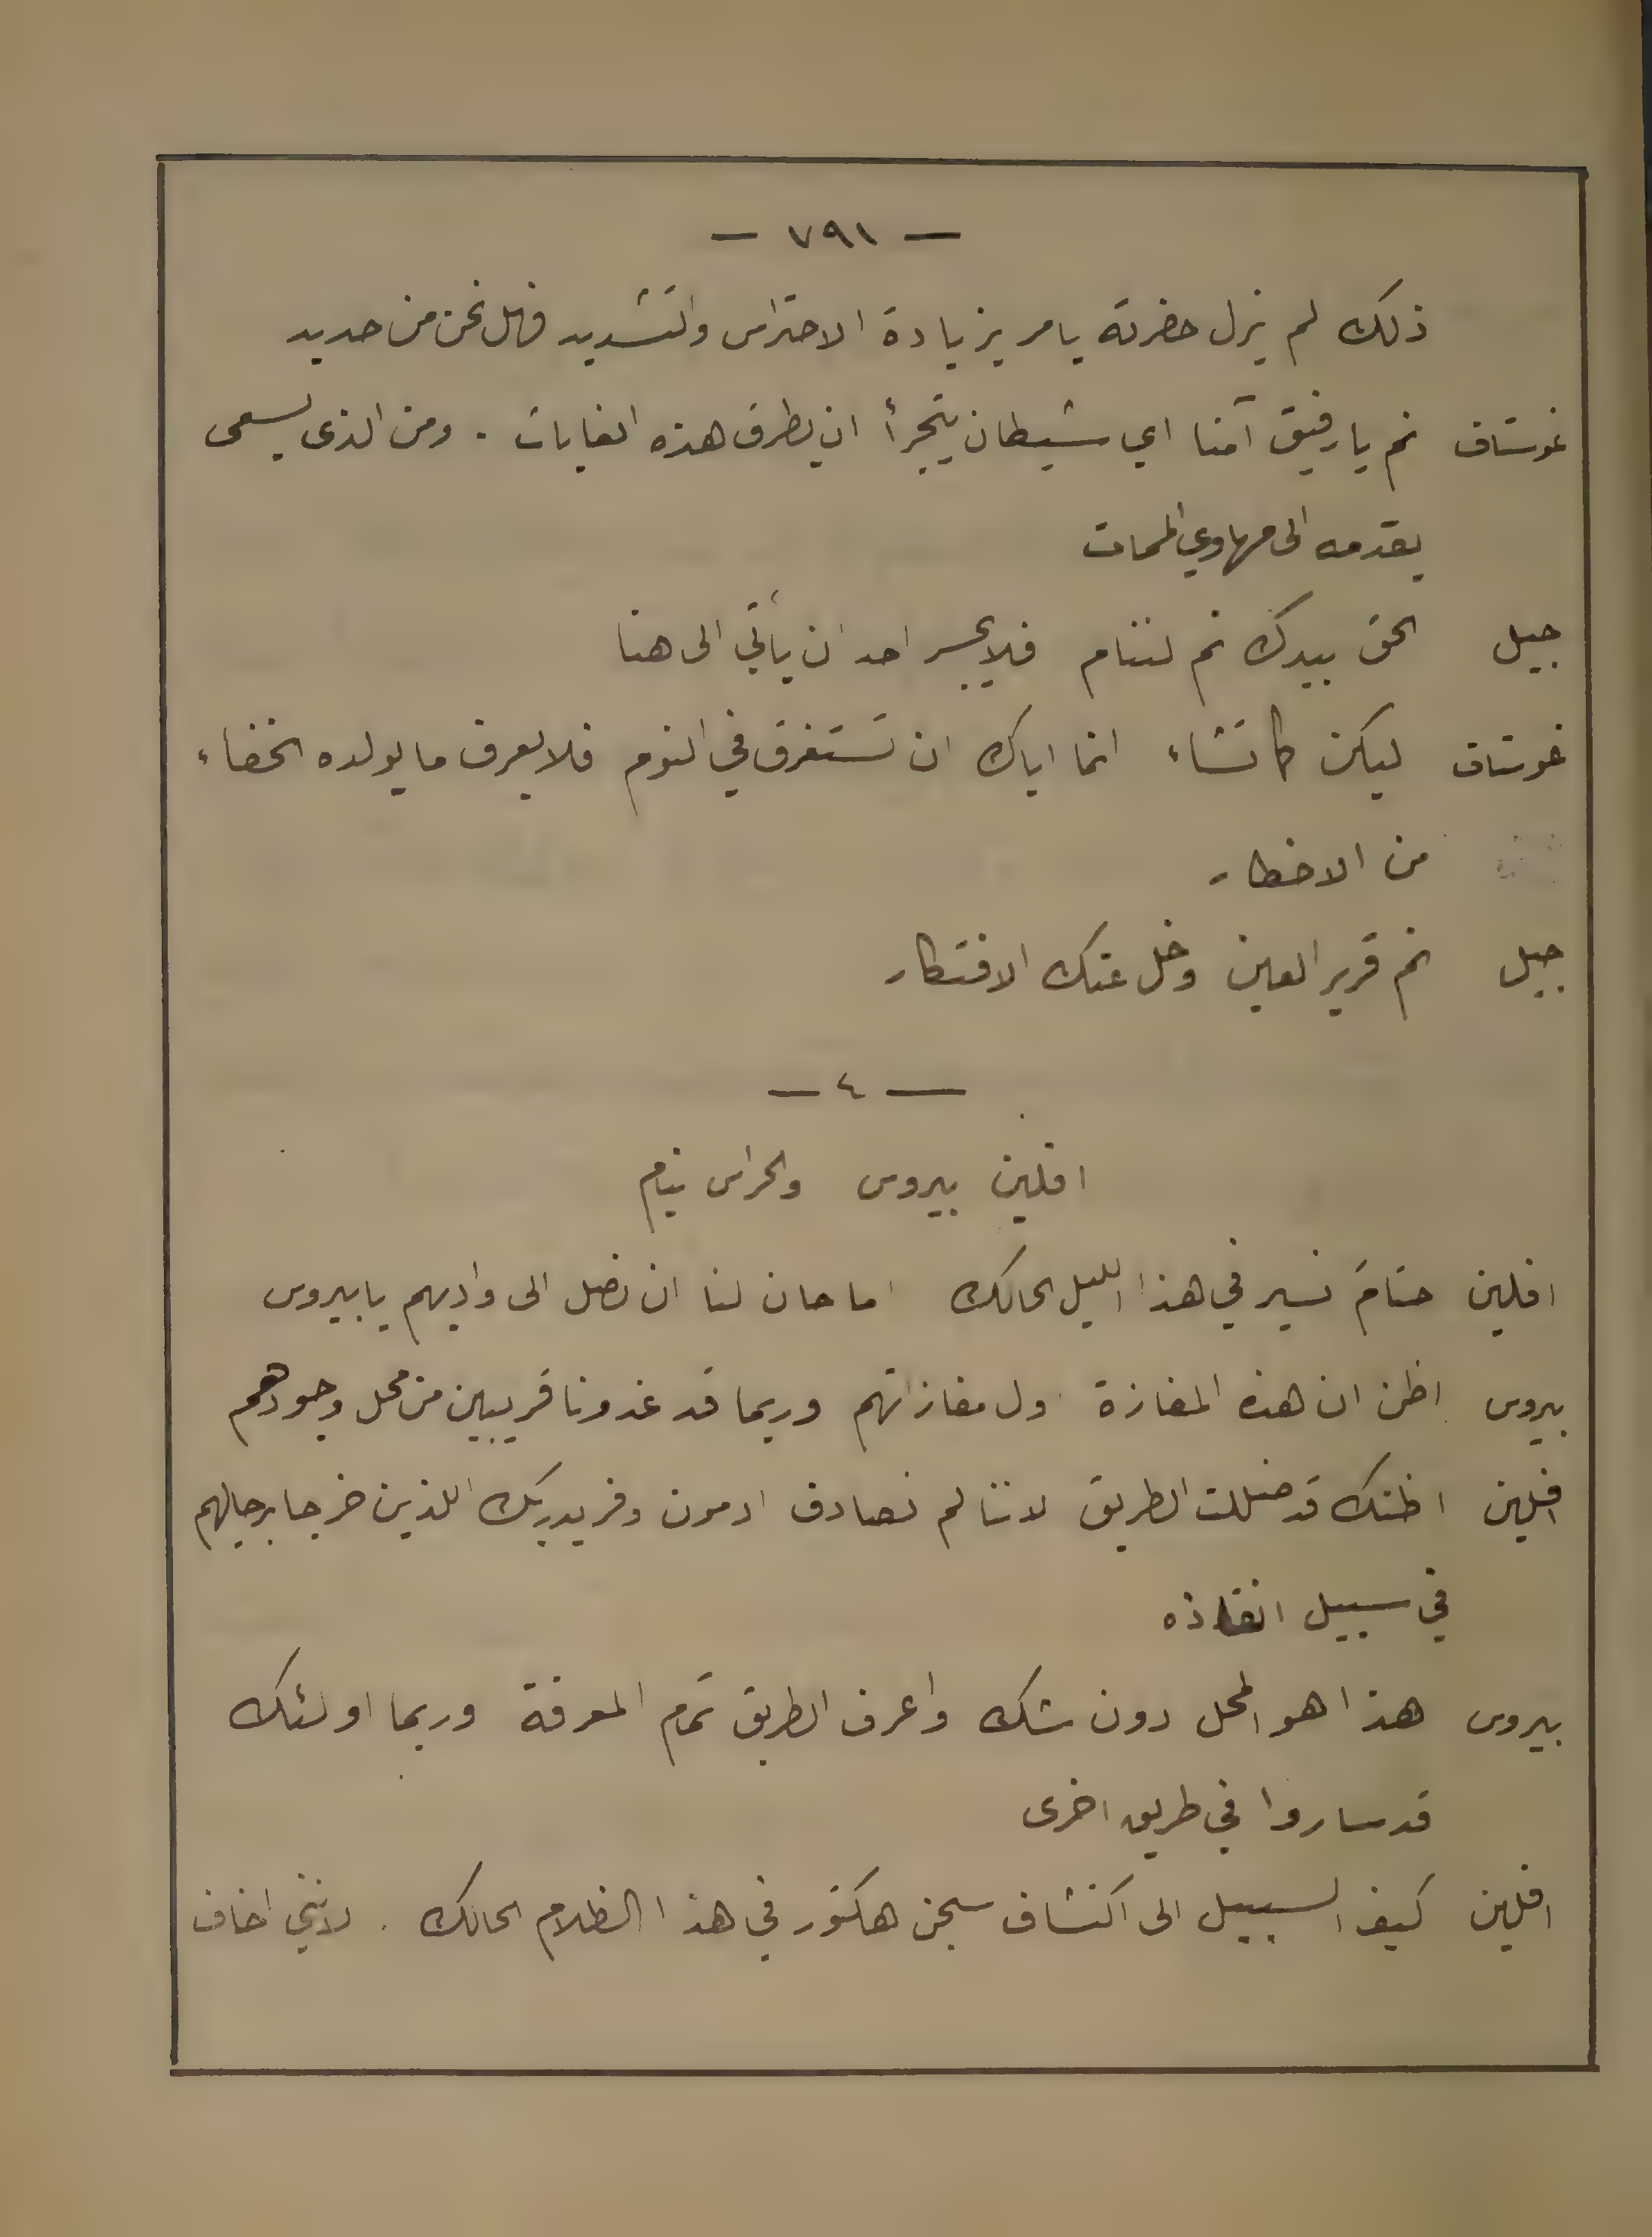 — ٧٩١ —
ذلك لم يزل حضرته يامر بزيادة الاحتراس والتشديد فهل نحن من حديد
غوستاف نم يا رفيق آمنا اي شيطان يتجرأ ان يطرق هذه الغابات . ومن الذى يسعى
بقدمه الى مهاوي الممات
جيل الحق بيدك نم لننام فلا يجسر احد ان يأتي الى هنا
غوستاف ليكن كما تشاء انما اياك ان تستغرق في النوم فلا يعرف ما يولده الخفاء
من الاخطار
جيل نم قرير العين وخل عنك الافتكار
— ٤ —
افلين بيروس والحراس نيام
افلين حتامَ نسير في هذا الليل الحالك اما حان لنا ان نصل الى واديهم يا بيروس
بيروس اظن ان هذه المغازة ول مغازاتهم وربما قد غدونا قريبين من محل وجودهم
افلين اظنك قد ضللت الطريق لاننا لم نصادف ادمون وفريدريك اللذين خرجا برجالهم
في سبيل انقاذه
بيروس هذا هو المحل دون شك واعرف الطريق تمام المعرفة وربما اولئك
قد ساروا في طريق اخرى
افلين كيف السبيل الى اكتشاف سجن هكتور في هذا الظلام الحالك . لانني اخاف